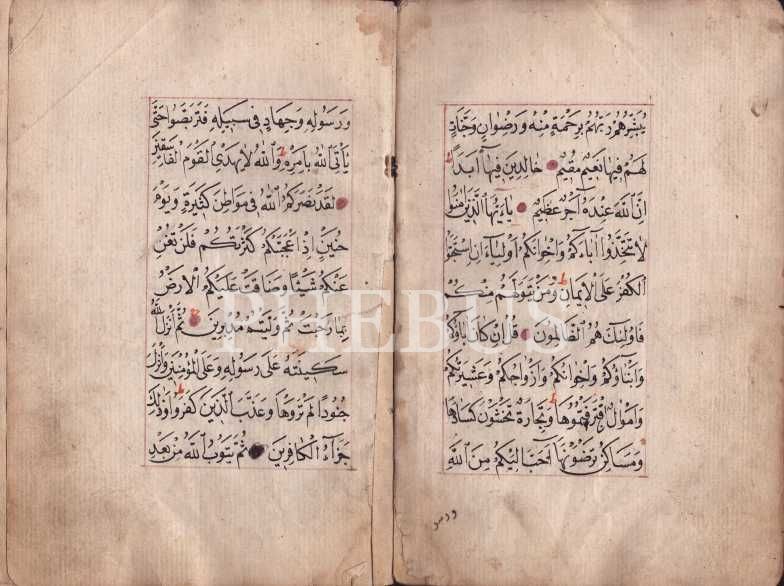 يُبَشِّرُهُمْ رَبُّهُمْ بِرَحْمَةٍ مِنْهُ وَرِضْوَانٍ وَجَنَّاتٍ
لَهُمْ فِيهَا نَعِيمٌ مُقِيمٌ خَالِدِينَ فِيهَا أَبَدًا
اِنَّ اللّٰهَ عِنْدَهُ أَجْرٌ عَظِيمٌ يَاءَيُّهَا الَّذِينَ اٰمَنُوا
لَا تَتَّخِذُوا اٰبَاءَكُمْ وَاِخْوَانَكُمْ أَوْلِيَاءَ اِنِ اسْتَحَبُّوا
الْكُفْرَ عَلَى الْاِيمَانِ وَمَنْ يَتَوَلَّهُمْ مِنْكُمْ
فَاُولٰئِكَ هُمُ الظَّالِمُونَ قُلْ اِنْ كَانَ اٰبَاؤُكُمْ
وَأَبْنَاؤُكُمْ وَاِخْوَانُكُمْ وَأَزْوَاجُكُمْ وَعَشِيرَتُكُمْ
وَأَمْوَالٌ اقْتَرَفْتُمُوهَا وَتِجَارَةٌ تَخْشَوْنَ كَسَادَهَا
وَمَسَاكِنُ تَرْضَوْنَهَا أَحَبَّ اِلَيْكُمْ مِنَ اللّٰهِ
وَرَسُولِهِ وَجِهَادٍ فِي سَبِيلِهِ فَتَرَبَّصُوا حَتَّى
يَأْتِيَ اللّٰهُ بِأَمْرِهِ وَاللّٰهُ لَا يَهْدِي الْقَوْمَ الْفَاسِقِينَ
لَقَدْ نَصَرَكُمُ اللّٰهُ فِي مَوَاطِنَ كَثِيرَةٍ وَيَوْمَ
حُنَيْنٍ اِذْ أَعْجَبَتْكُمْ كَثْرَتُكُمْ فَلَنْ تُغْنِ
عَنْكُمْ شَيْئًا وَضَاقَتْ عَلَيْكُمُ الْاَرْضُ
بِمَا رَحُبَتْ ثُمَّ وَلَّيْتُمْ مُدْبِرِينَ ثُمَّ أَنْزَلَ اللّٰهُ
سَكِينَتَهُ عَلَى رَسُولِهِ وَعَلَى الْمُؤْمِنِينَ وَأَنْزَلَ
جُنُودًا لَمْ تَرَوْهَا وَعَذَّبَ الَّذِينَ كَفَرُوا وَذٰلِكَ
جَزَاءُ الْكَافِرِينَ ثُمَّ يَتُوبُ اللّٰهُ مِنْ بَعْدِ
PHEBUS